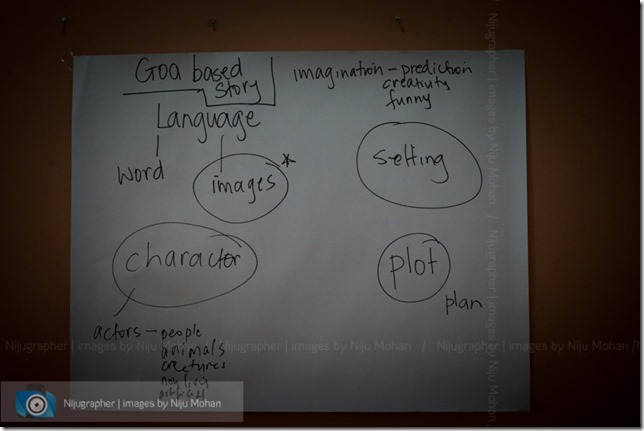 Goa based
story
imagination – prediction
creativity
funny
Language
word
images *
setting
charactor
plot
plan
actors – people
animals
creatures
Nijugrapher | images by Niju Mohan / Nijugrapher | images by Niju Mohan / N
Nijugrapher | images by Niju Mohan
Nijugrapher | images by Niju Mohan / Nijugrapher | images by Niju Mohan